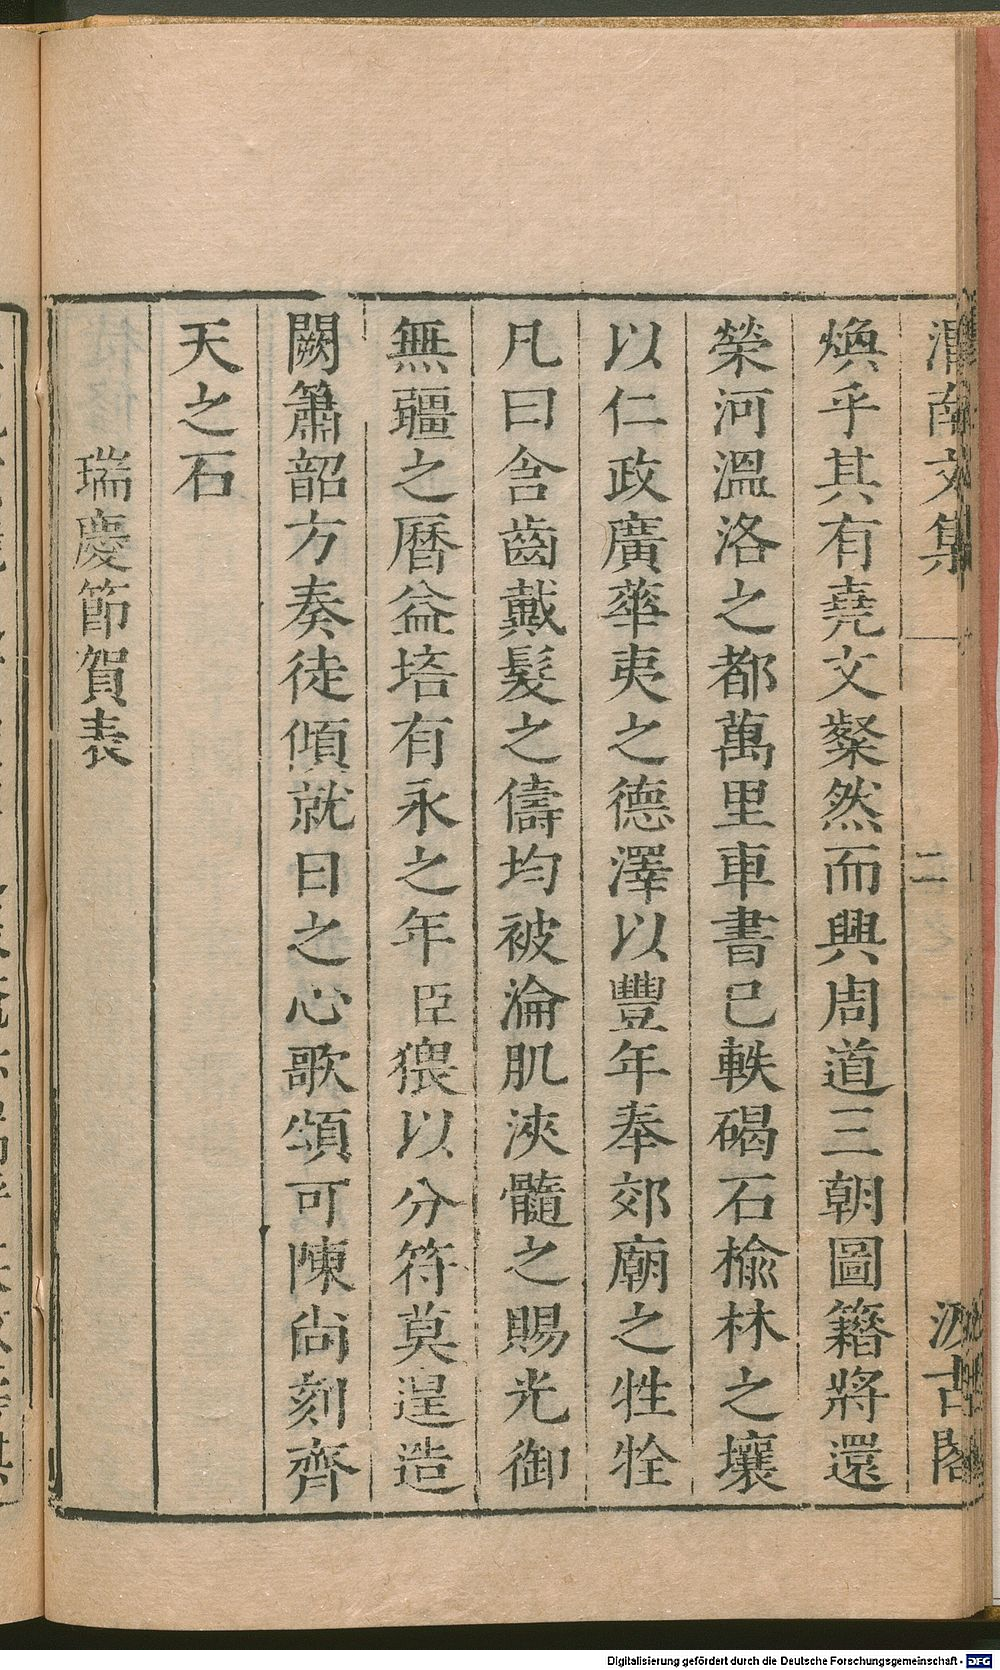 渭南文集 二 汲古閣
煥乎其有堯文粲然而興周道三朝圖籍將還
榮河溫洛之都萬里車書已軼碣石榆林之壤
以仁政廣華夷之德澤以豐年奉郊廟之牲牷
凡曰含齒戴髮之儔均被淪肌浹髓之賜光御
無疆之曆益培有永之年臣猥以分符莫遑造
闕簫韶方奏徒傾就日之心歌頌可陳尚刻齊
天之石
瑞慶節賀表
Digitalisierung gefördert durch die Deutsche Forschungsgemeinschaft - DFG